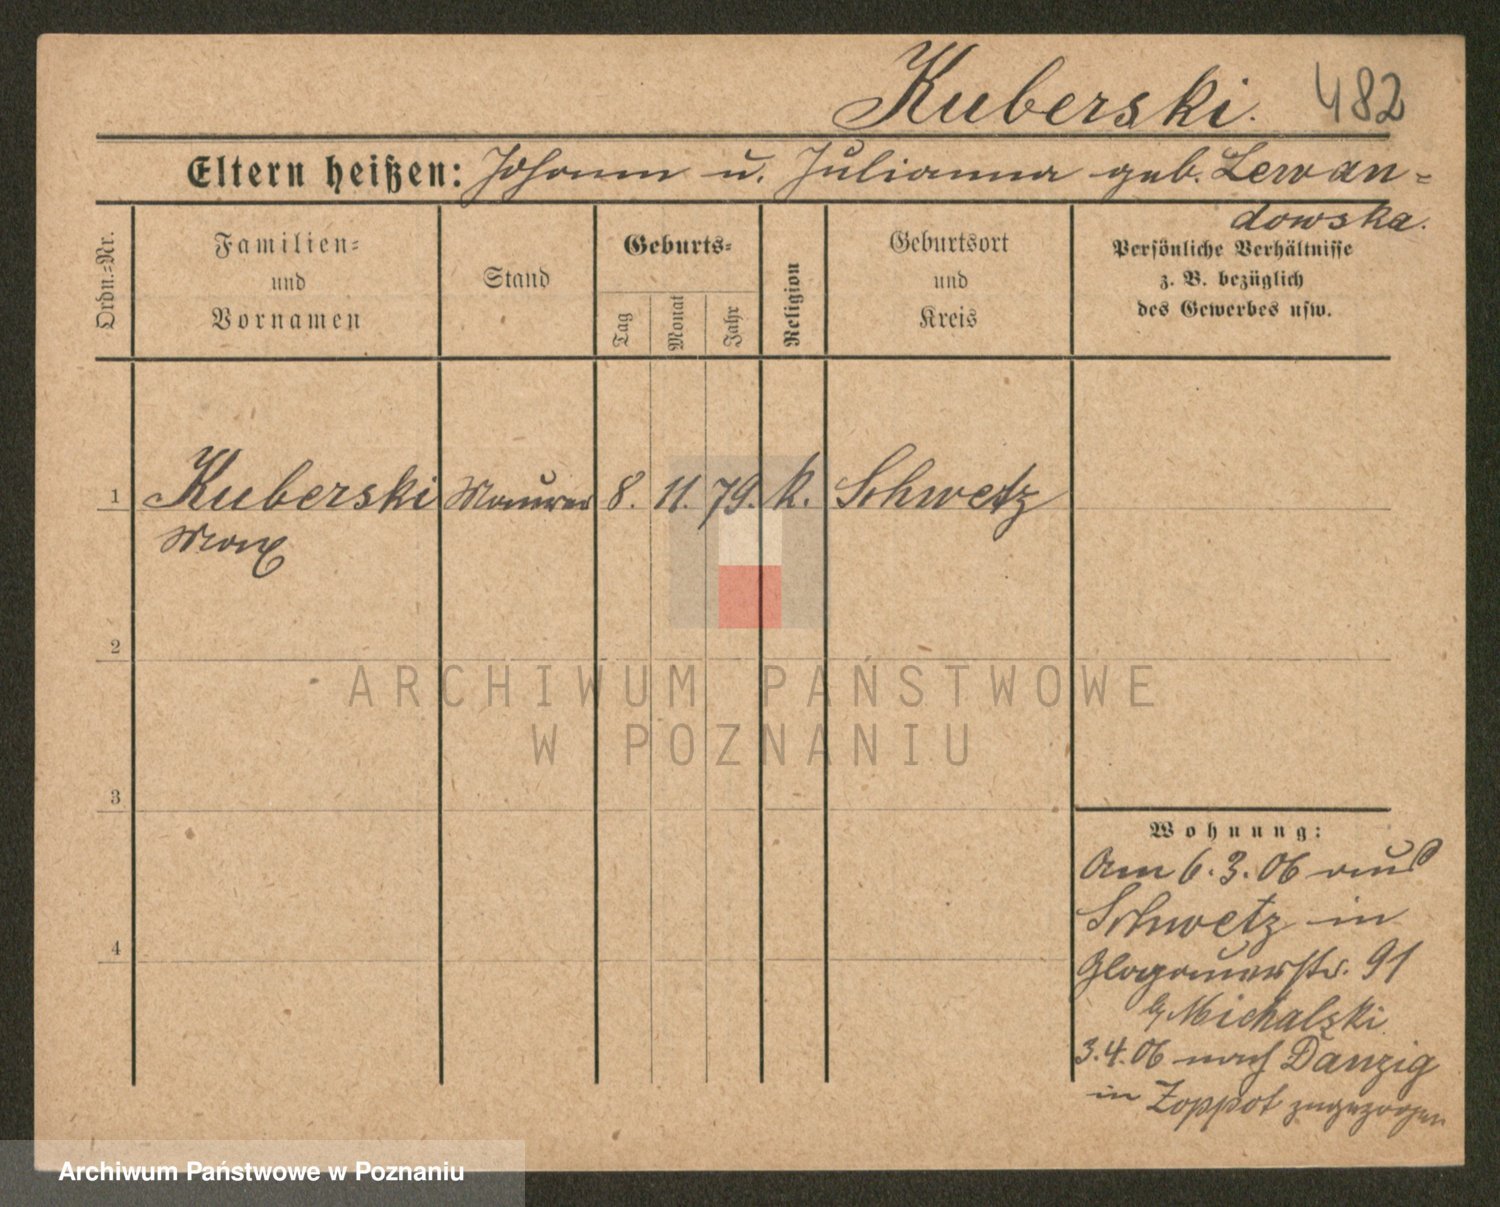 Kuberski. 482
Eltern heißen: Johann u. Julianna geb. Lewan=
dowska.
Ordn.=Nr.
Familien=
und
Vornamen
Stand
Geburts=
Tag
Monat
Jahr
Religion
Geburtsort
und
Kreis
Persönliche Verhältnisse
z. B. bezüglich
des Gewerbes usw.
1 Kuberski Maurer 8. 11. 79. k. Schwetz
Max
2
3
4
Wohnung:
Am 6.3.06 aus
Schwetz in
Glogauerstr. 91
b/ Michalski
3.4.06 nach Danzig
in Zoppot zugezogen
ARCHIWUM PAŃSTWOWE
W POZNANIU
Archiwum Państwowe w Poznaniu